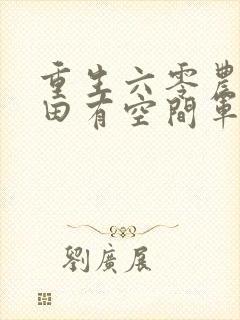 重生六零農
田有空間軍
劉廣展